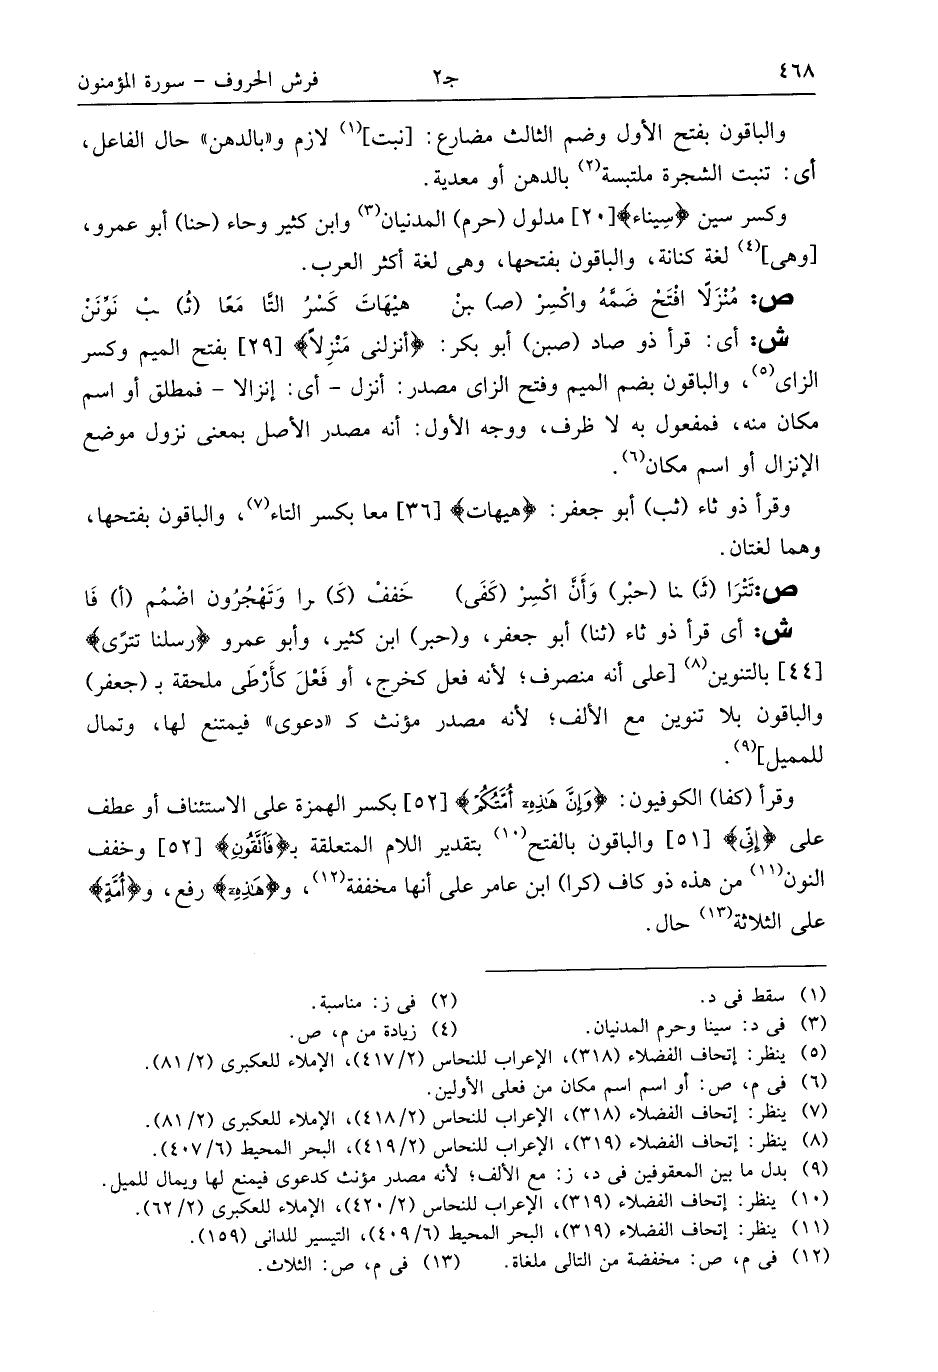 ٤٦٨ جـ٢ فرش الحروف – سورة المؤمنون
والباقون بفتح الأول وضم الثالث مضارع: [نبت](١) لازم و«بالدهن» حال الفاعل،
أى: تنبت الشجرة ملتبسة(٢) بالدهن أو معدية.
وكسر سين ﴿سِيناء﴾[٢٠] مدلول (حرم) المدنيان(٣) وابن كثير وحاء (حنا) أبو عمرو،
[وهى](٤) لغة كنانة، والباقون بفتحها، وهى لغة أكثر العرب.
ص: مُنْزَلًا افْتَحْ ضَمَّهُ واكْسِرْ (صـ) ـبنْ هيْهَاتَ كَسْرُ التَّا مَعًا (ثُـ) ـبْ نَوِّنَنْ
ش: أى: قرأ ذو صاد (صبن) أبو بكر: ﴿أنزلنى مَنْزِلاً﴾ [٢٩] بفتح الميم وكسر
الزاى(٥)، والباقون بضم الميم وفتح الزاى مصدر: أنزل – أى: إنزالا – فمطلق أو اسم
مكان منه، فمفعول به لا ظرف، ووجه الأول: أنه مصدر الأصل بمعنى نزول موضع
الإنزال أو اسم مكان(٦).
وقرأ ذو ثاء (ثب) أبو جعفر: ﴿هيهات﴾ [٣٦] معا بكسر التاء(٧)، والباقون بفتحها،
وهما لغتان.
ص:تَتْرَا (ثَـ) ـنا (حبْر) وَأَنَّ اكْسِرْ (كَفَى) خَففْ (كَـ) ـرا وَتَهْجُرُون اضْمُم (أَ) فَا
ش: أى قرأ ذو ثاء (ثنا) أبو جعفر، و(حبر) ابن كثير، وأبو عمرو ﴿رسلنا تترًى﴾
[٤٤] بالتنوين(٨) [على أنه منصرف؛ لأنه فعل كخرج، أو فَعْلَ كأَرْطَى ملحقة بـ (جعفر)
والباقون بلا تنوين مع الألف؛ لأنه مصدر مؤنث كـ «دعوى» فيمتنع لها، وتمال
للمميل](٩).
وقرأ (كفا) الكوفيون: ﴿وَإِنَّ هَٰذِهِۦٓ أُمَّتُكُمْ﴾ [٥٢] بكسر الهمزة على الاستئناف أو عطف
على ﴿إِنِّي﴾ [٥١] والباقون بالفتح(١٠) بتقدير اللام المتعلقة بـ﴿فَٱتَّقُونِ﴾ [٥٢] وخفف
النون(١١) من هذه ذو كاف (كرا) ابن عامر على أنها مخففة(١٢)، و﴿هَٰذِهِۦٓ﴾ رفع، و﴿أُمَّةٍ﴾
على الثلاثة(١٣) حال.
(١) سقط فى د. (٢) فى ز: مناسبة.
(٣) فى د: سينا وحرم المدنيان. (٤) زيادة من م، ص.
(٥) ينظر: إتحاف الفضلاء (٣١٨)، الإعراب للنحاس (٤١٧/٢)، الإملاء للعكبرى (٨١/٢).
(٦) فى م، ص: أو اسم اسم مكان من فعلى الأولين.
(٧) ينظر: إتحاف الفضلاء (٣١٨)، الإعراب للنحاس (٤١٨/٢)، الإملاء للعكبرى (٨١/٢).
(٨) ينظر: إتحاف الفضلاء (٣١٩)، الإعراب للنحاس (٤١٩/٢)، البحر المحيط (٤٠٧/٦).
(٩) بدل ما بين المعقوفين فى د، ز: مع الألف؛ لأنه مصدر مؤنث كدعوى فيمنع لها ويمال للميل.
(١٠) ينظر: إتحاف الفضلاء (٣١٩)، الإعراب للنحاس (٤٢٠/٢)، الإملاء للعكبرى (٦٢/٢).
(١١) ينظر: إتحاف الفضلاء (٣١٩)، البحر المحيط (٤٠٩/٦)، التيسير للدانى (١٥٩).
(١٢) فى م، ص: مخفضة من التالى ملغاة. (١٣) فى م، ص: الثلاث.